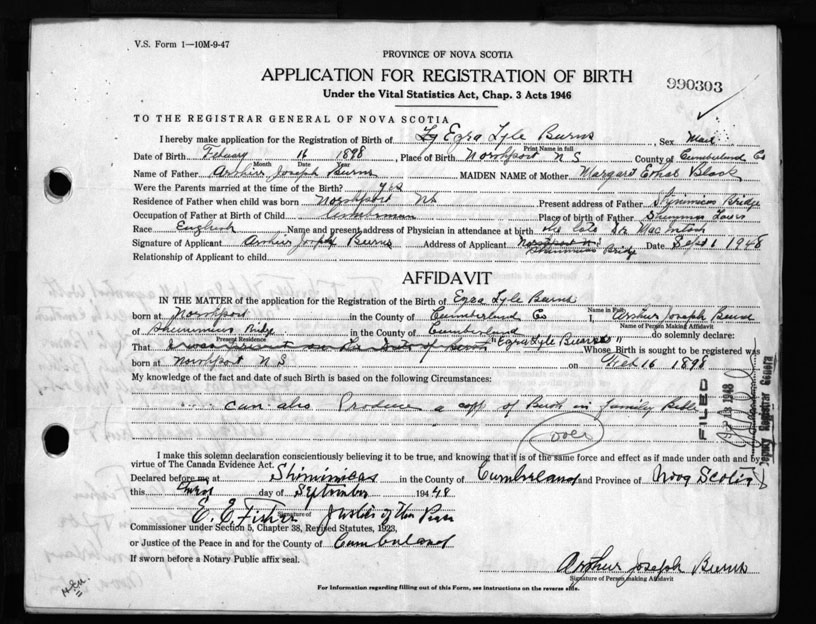 V.S. Form 1—10M-9-47
PROVINCE OF NOVA SCOTIA
APPLICATION FOR REGISTRATION OF BIRTH
990303
Under the Vital Statistics Act, Chap. 3 Acts 1946
TO THE REGISTRAR GENERAL OF NOVA SCOTIA
I hereby make application for the Registration of Birth of Ezra Lyle Burns, Sex Male
Print Name in full
Date of Birth 16 1898, Place of Birth Northport N S County of Cumberland Co
Month Date Year
Name of Father Arthur Joseph Burns MAIDEN NAME of Mother Margaret Ethel Black
Were the Parents married at the time of the Birth? yes
Residence of Father when child was born Northport NS Present address of Father Bridge
Occupation of Father at Birth of Child Place of birth of Father
Race English Name and present address of Physician in attendance at birth the late Dr MacIntosh
Signature of Applicant Arthur Joseph Burns Address of Applicant Northport N.S. Date Sept 1 1948
Bridge
Relationship of Applicant to child
AFFIDAVIT
IN THE MATTER of the application for the Registration of the Birth of Ezra Lyle Burns
born at Northport in the County of Cumberland Co I, Arthur Joseph Burns
Name in Full
Name of Person Making Affidavit
of Bridge in the County of Cumberland do solemnly declare:
Present Residence
That I was present on the date of "Ezra Lyle Burns" Whose Birth is sought to be registered was
born at Northport N S on Feb 16 1898
My knowledge of the fact and date of such Birth is based on the following Circumstances:
can also Produce a copy of Birth in family Bible
over
FILED
1948
Deputy Registrar General
I make this solemn declaration conscientiously believing it to be true, and knowing that it is of the same force and effect as if made under oath and by
virtue of The Canada Evidence Act.
Declared before me at Shinimicas in the County of Cumberland and Province of Nova Scotia
this first day of September 1948
E. E. Fisher Justice of the Peace
Signature of
Commissioner under Section 5, Chapter 38, Revised Statutes, 1923,
or Justice of the Peace in and for the County of Cumberland
If sworn before a Notary Public affix seal.
Arthur Joseph Burns
Signature of Person making Affidavit
For Information regarding filling out of this Form, see instructions on the reverse side.